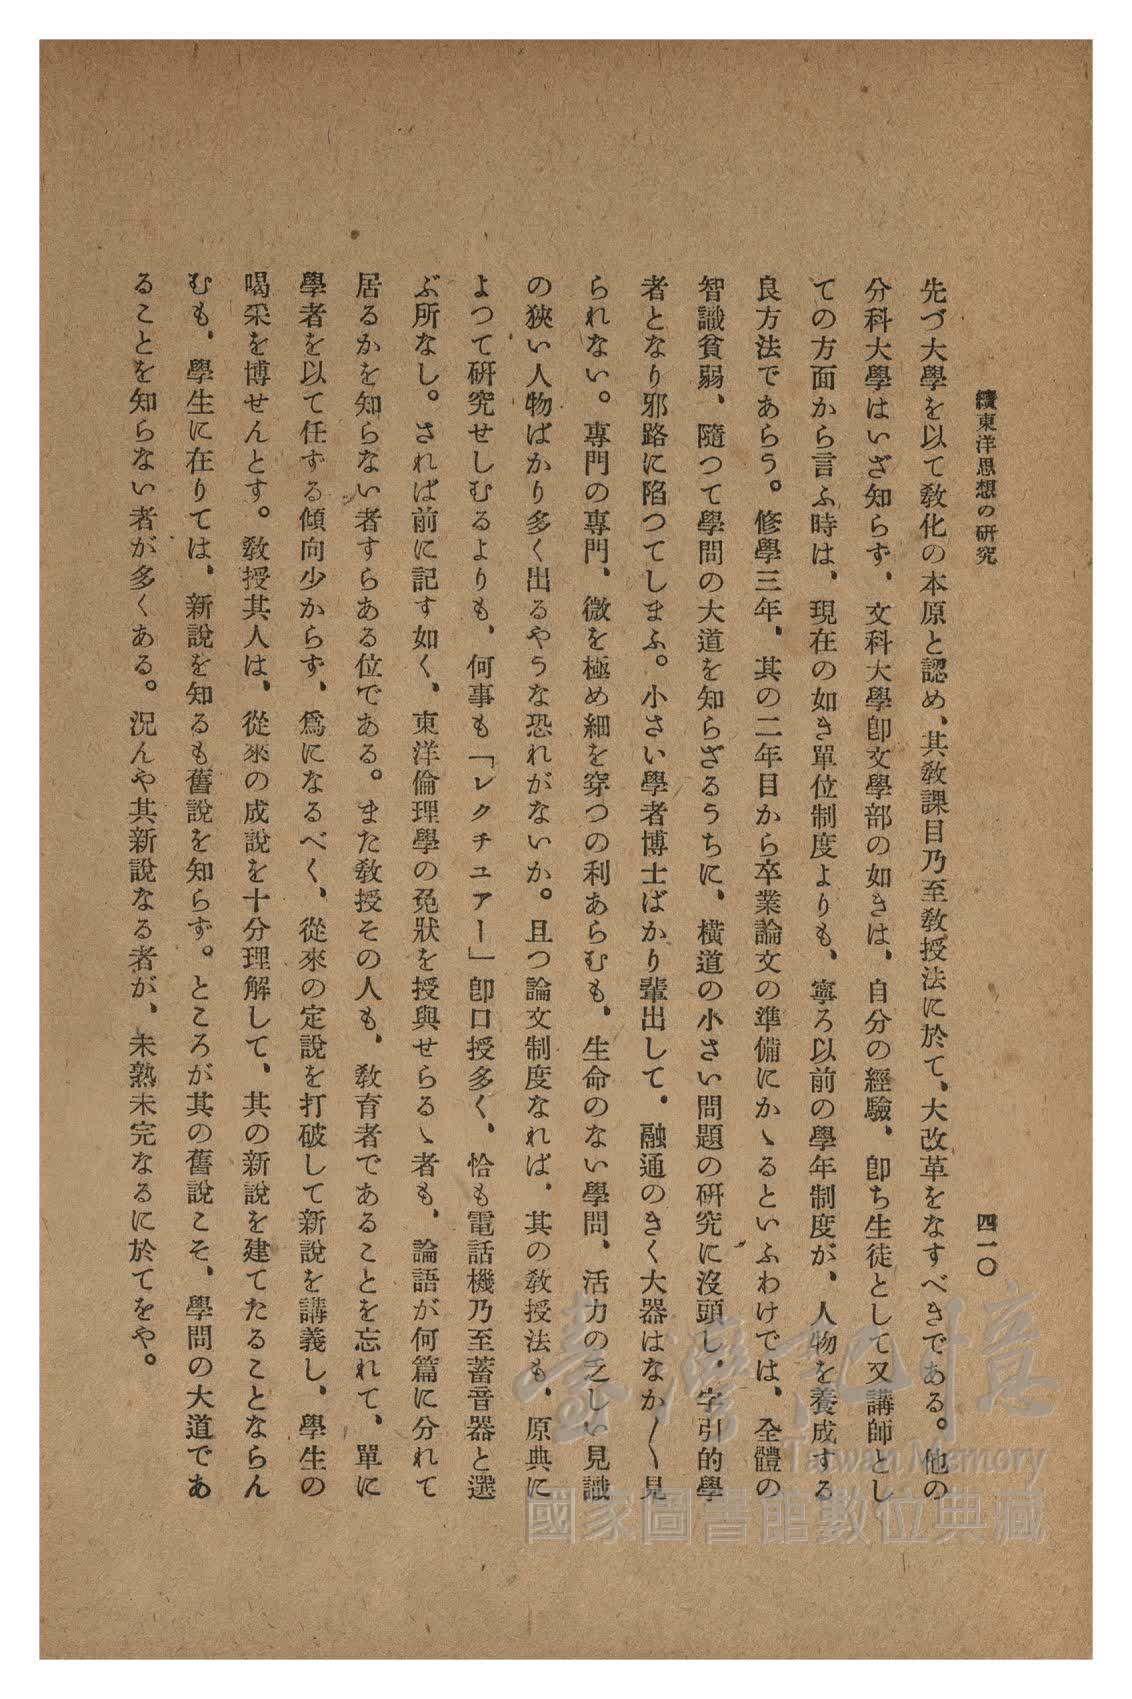 續東洋思想の研究
四一〇
先づ大學を以て敎化の本原と認め、其敎課目乃至敎授法に於て、大改革をなすべきである。他の
分科大學はいざ知らず、文科大學卽文學部の如きは、自分の經驗、卽ち生徒として又講師とし
ての方面から言ふ時は、現在の如き單位制度よりも、寧ろ以前の學年制度が、人物を養成する
良方法であらう。修學三年、其の二年目から卒業論文の準備にかゝるといふわけでは、全體の
智識貧弱、隨つて學問の大道を知らざるうちに、橫道の小さい問題の硏究に沒頭し、字引的學
者となり邪路に陷つてしまふ。小さい學者博士ばかり輩出して、融通のきく大器はなか〱見
られない。專門の專門、微を極め細を穿つの利あらむも、生命のない學問、活力の乏しい見識
の狹い人物ばかり多く出るやうな恐れがないか。且つ論文制度なれば、其の敎授法も、原典に
よつて硏究せしむるよりも、何事も「レクチユアー」卽口授多く、恰も電話機乃至蓄音器と選
ぶ所なし。されば前に記す如く、東洋倫理學の免狀を授與せらるゝ者も、論語が何篇に分れて
居るかを知らない者すらある位である。また敎授その人も、敎育者であることを忘れて、單に
學者を以て任ずる傾向少からず、爲になるべく、從來の定說を打破して新說を講義し、學生の
喝采を博せんとす。敎授其人は、從來の成說を十分理解して、其の新說を建てたることならん
むも、學生に在りては、新說を知るも舊說を知らず。ところが其の舊說こそ、學問の大道であ
ることを知らない者が多くある。況んや其新說なる者が、未熟未完なるに於てをや。
臺灣記憶
Taiwan Memory
國家圖書館數位典藏